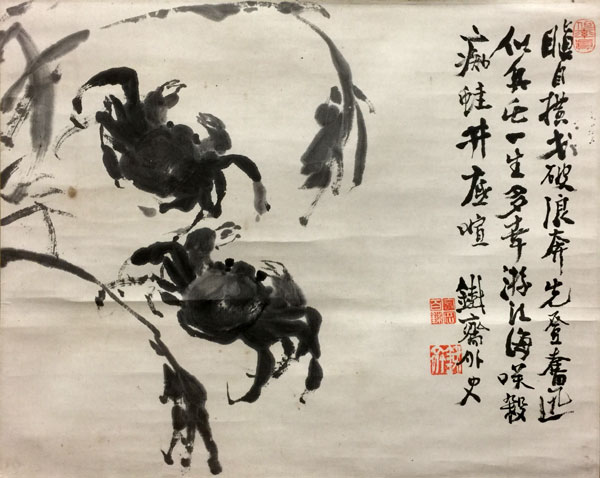 瞋目横戈破浪奔先登奮迅
似兵屯一生多幸游江海咲殺
痴蛙井底喧
鐵齋外史